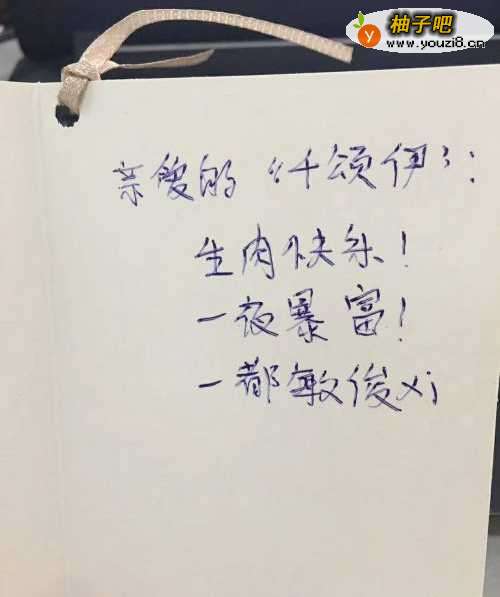 柚子吧
www.youzi8.cn
亲爱的“千颂伊”:
生肉快乐!
一夜暴富!
—都敏俊xi